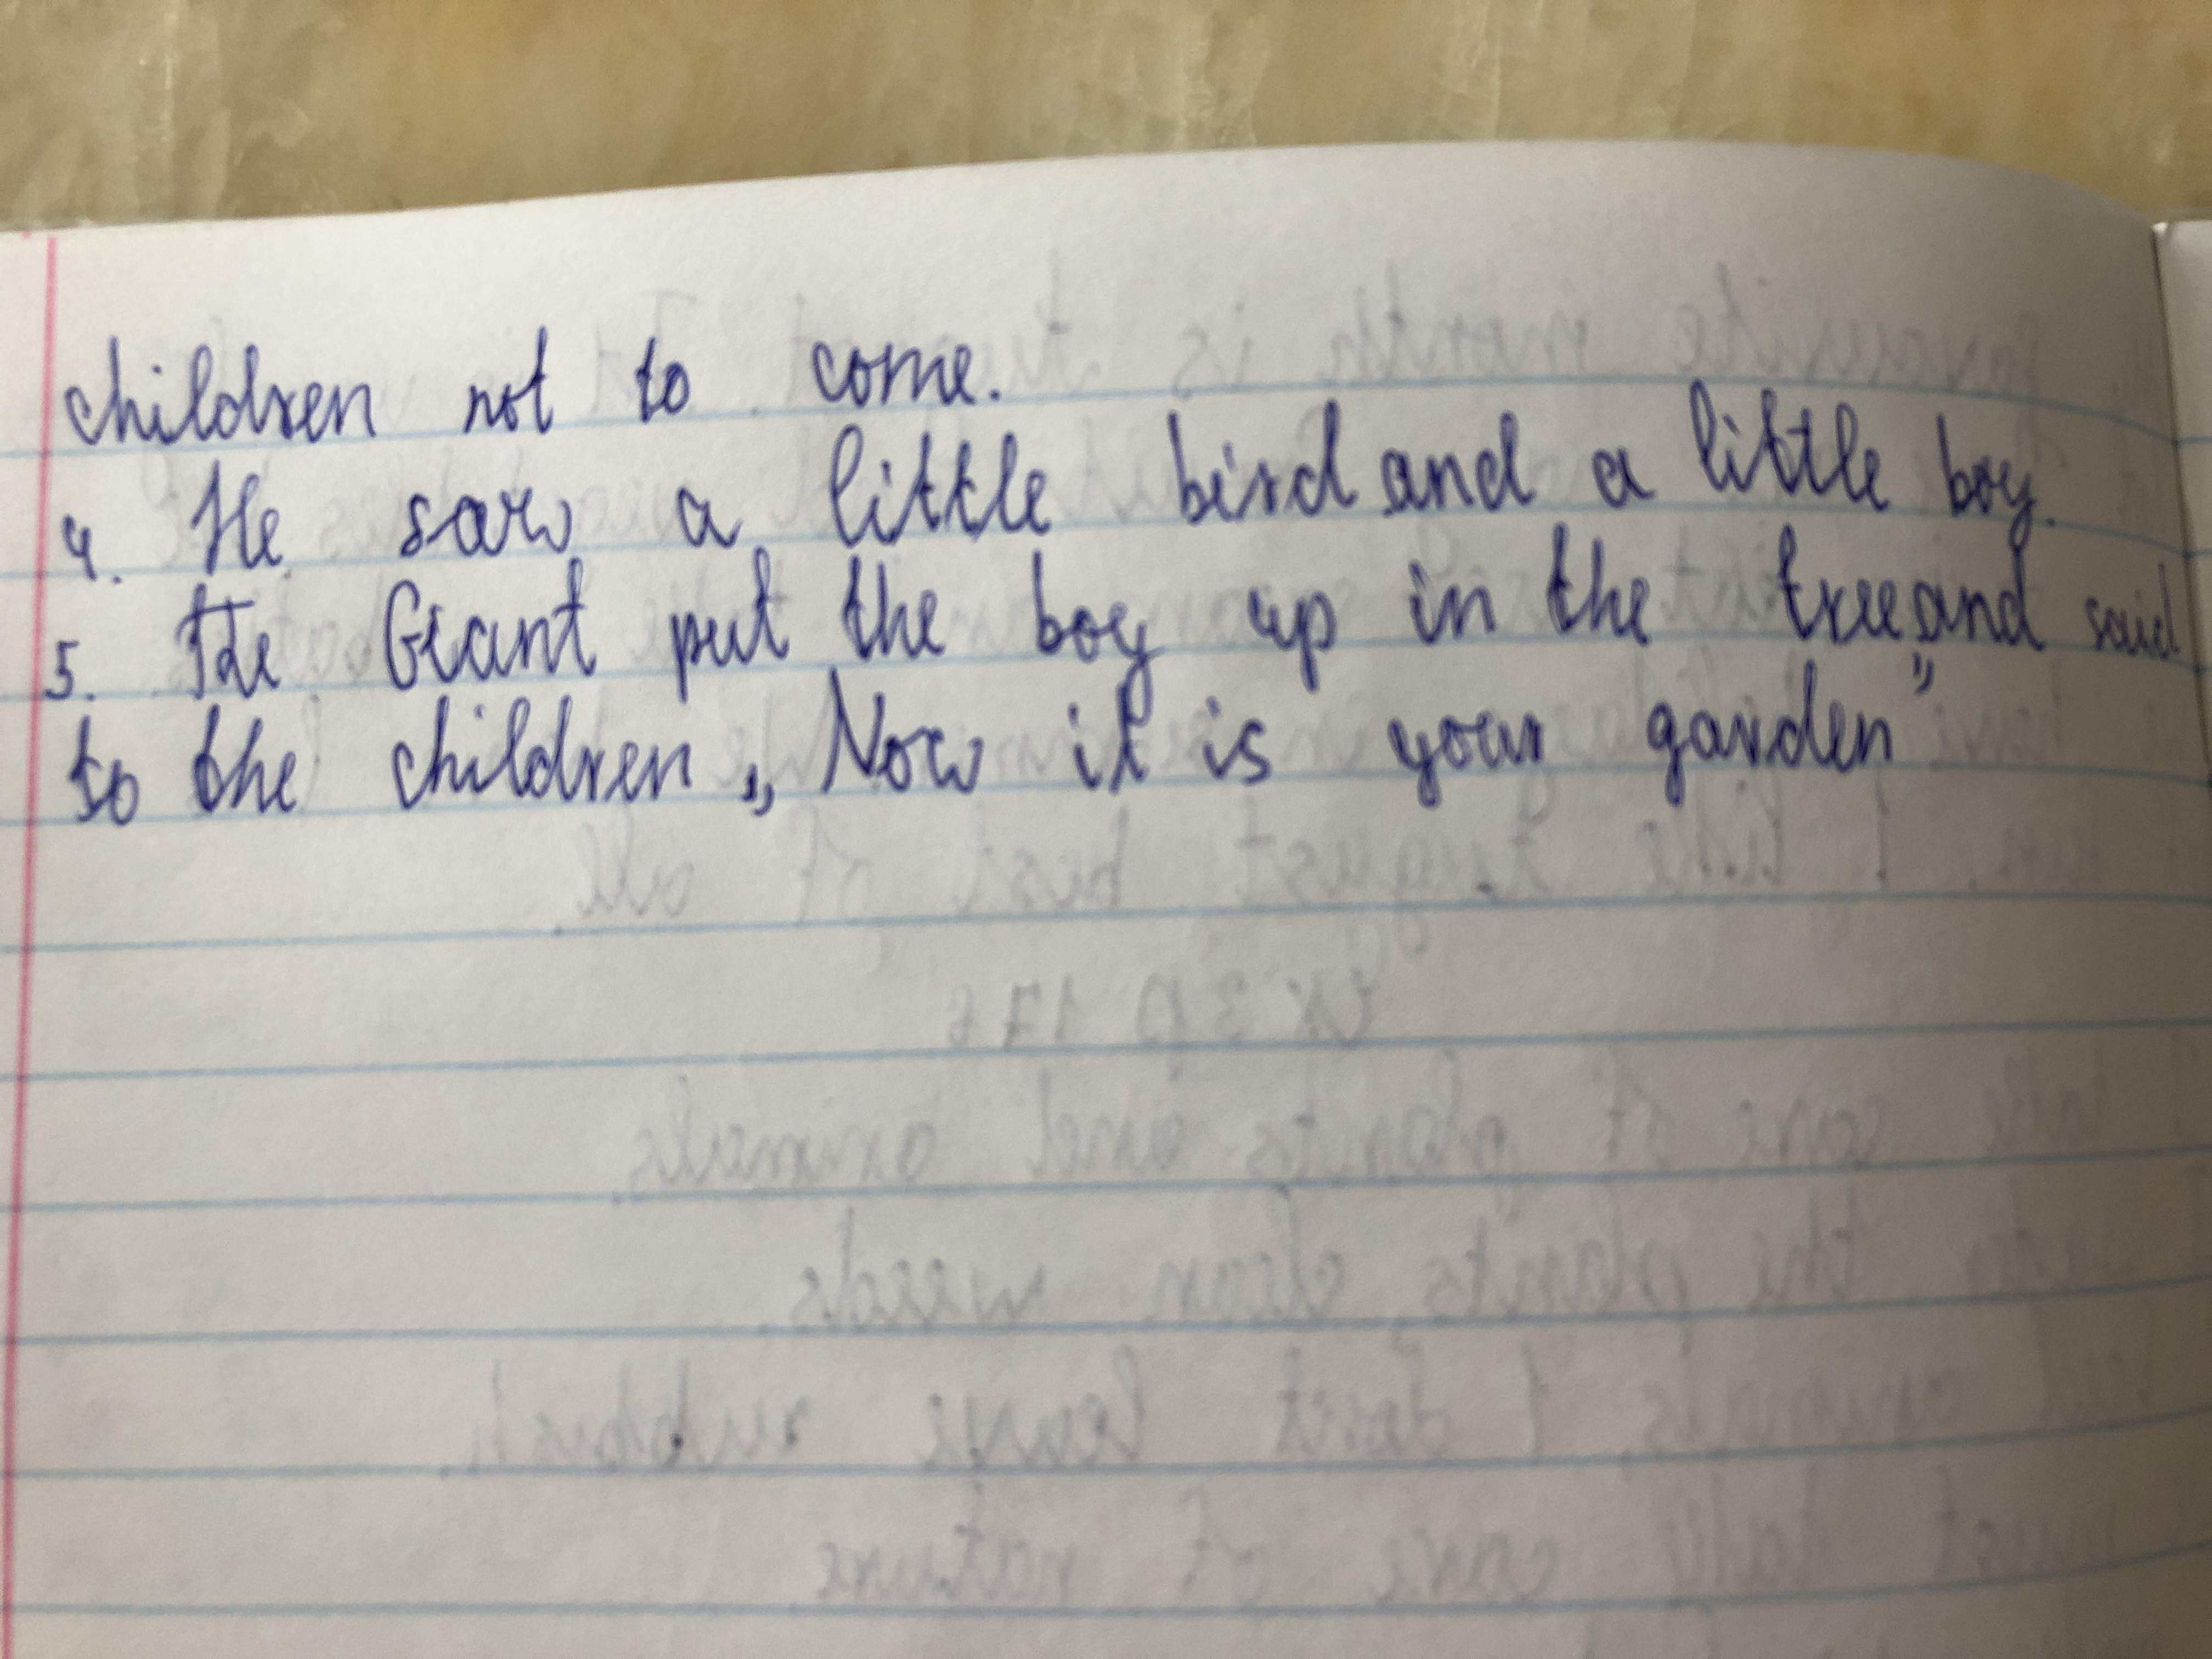 children not to come.
4. He saw a little bird and a little boy.
5. The Giant put the boy up in the tree and said
to the children „Now it is your garden”